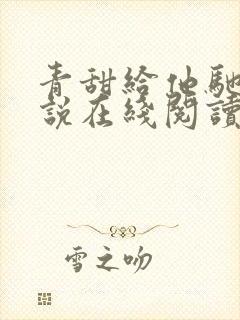 青甜給他馳
說在綫閱讀
雪之吻